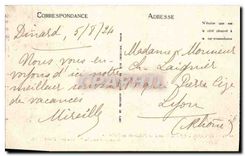 CORRESPONDANCE
ADRESSE
Dinard, 5/8/24
Nous vous en-
voyons d'ici notre
meilleur souvenir
de vacances
Mireille
Madame Monsieur
Ch. Laignier
rue Pierre
Lyon
(Rhône)